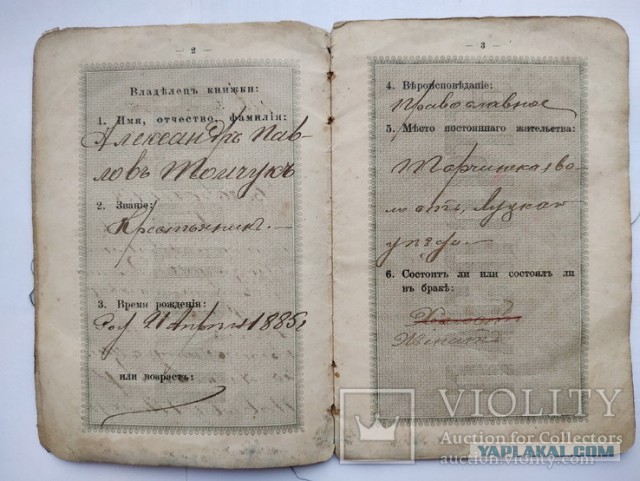 — 2 —
Владѣлецъ книжки:
1. Имя, отчество, фамилія:
Александръ Пав-
ловъ Томчукъ
2. Званіе:
Крестьянинъ
3. Время рожденія:
1885
или возрастъ:
— 3 —
4. Вѣроисповѣданіе:
Православное
5. Мѣсто постояннаго жительства:
во-
лости, Луцкаго
уѣзда
6. Состоитъ ли или состоялъ ли
въ бракѣ:
Холостъ
Женатъ
VIOLITY
Auction for Collectors
auction.violity.com
YAPLAKAL.COM